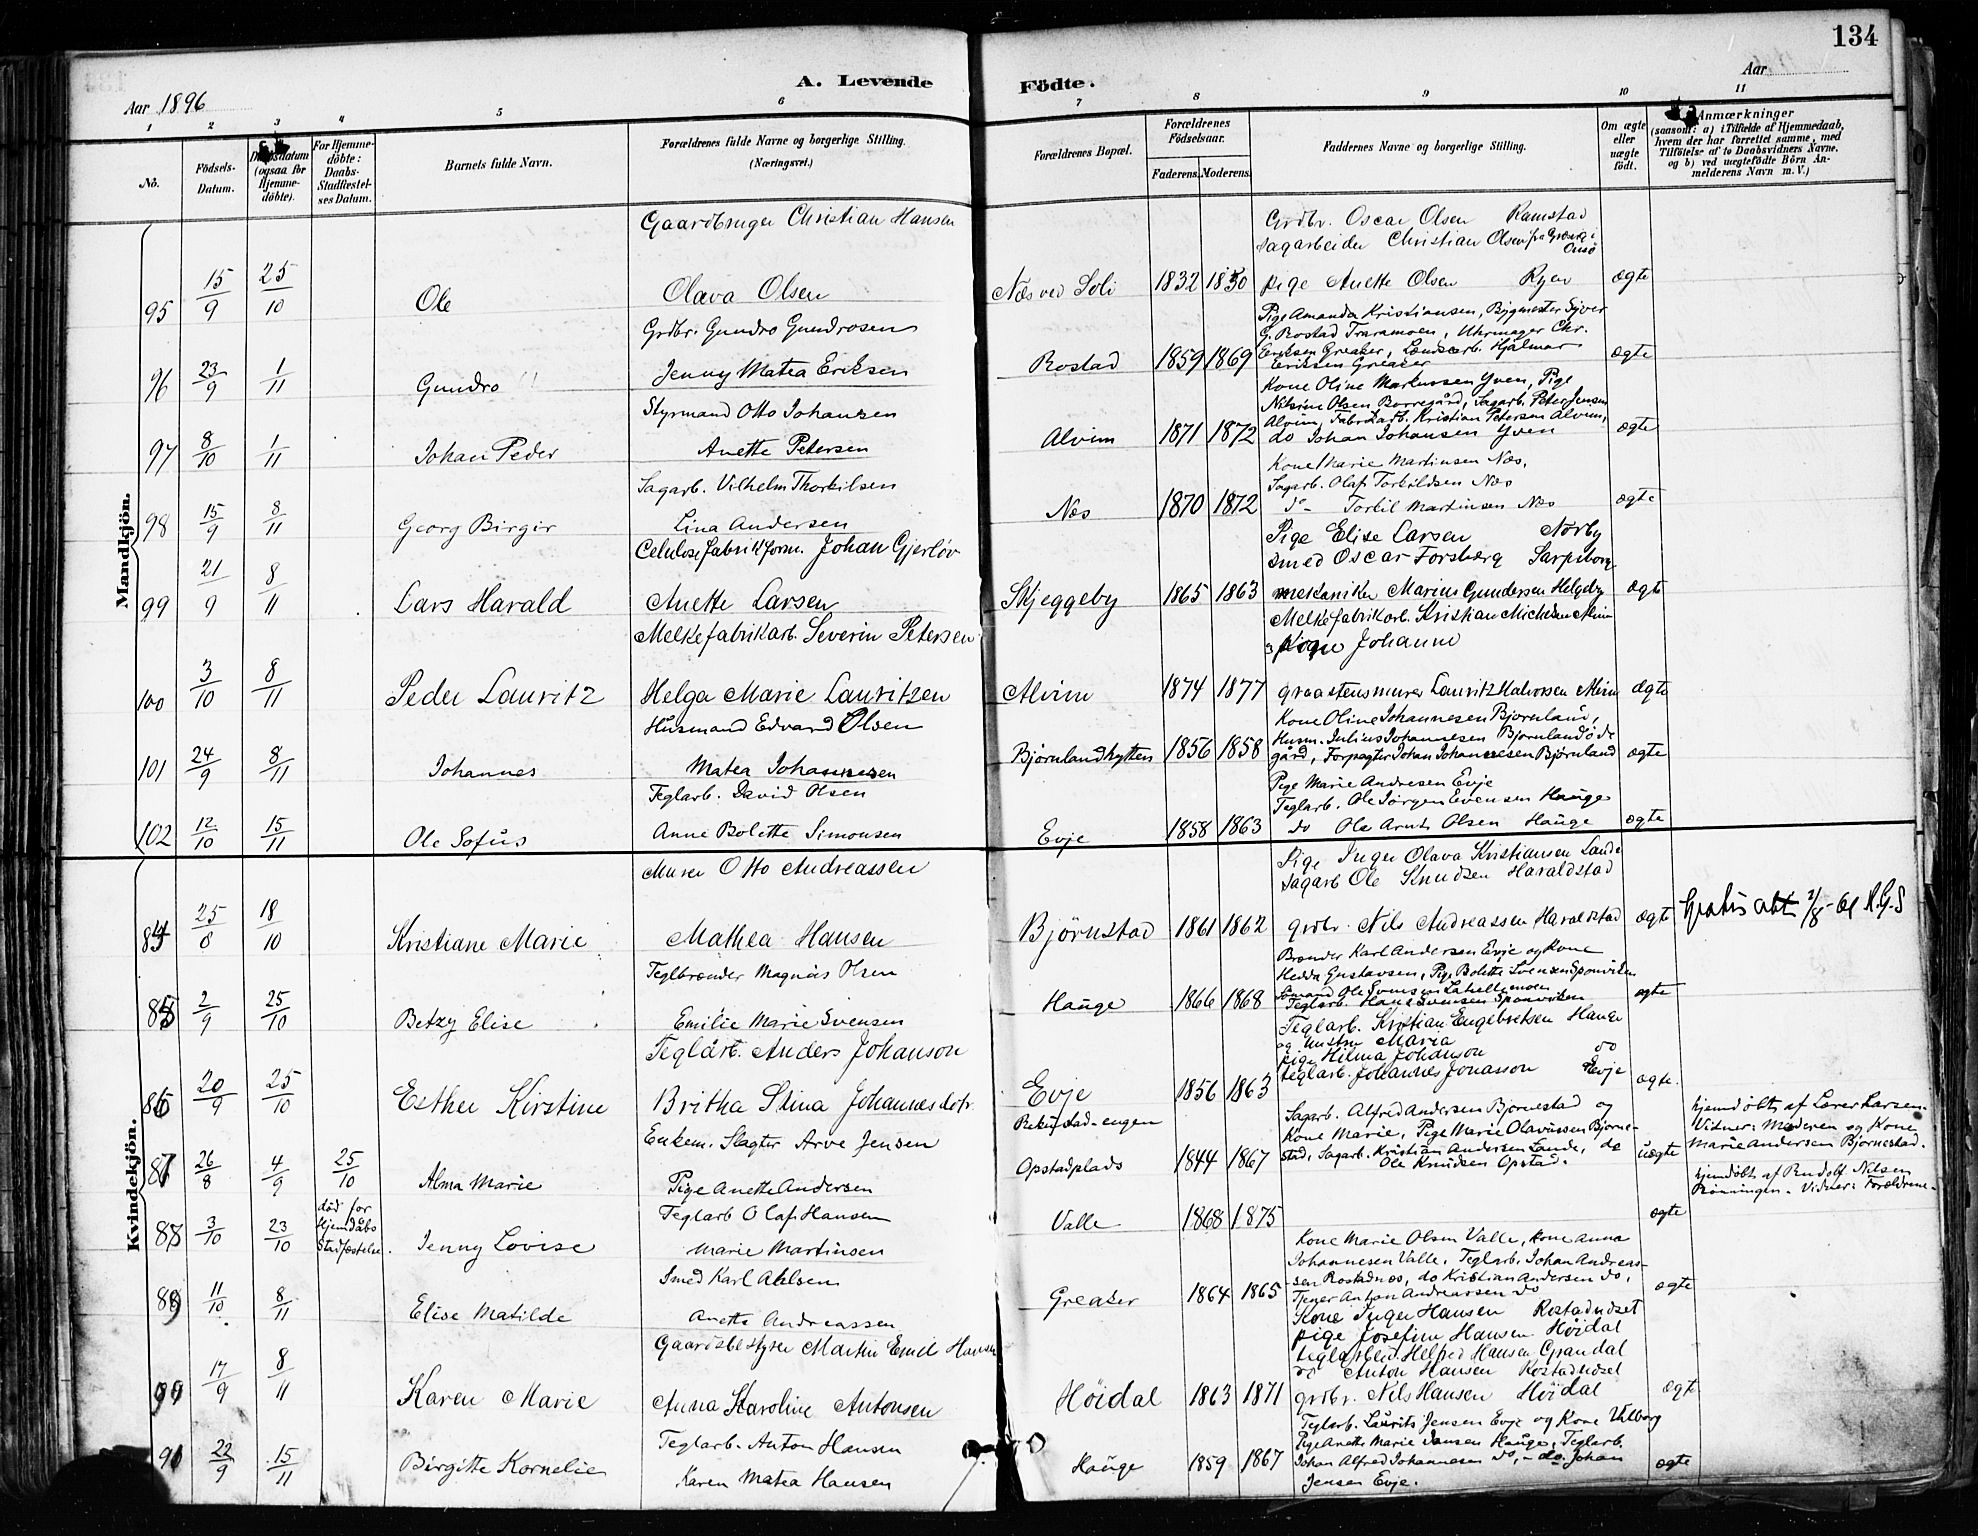 134
A. Levende Födte.
Aar 1896
Aar
1 2 3 4 5 6 7 8 9 10 11
No.
Födsels-Datum.
Daabsdatum (ogsaa for Hjemme-döbte).
For Hjemme-döbte: Daabs-Stadfæstel-ses Datum.
Barnets fulde Navn.
Forældrenes fulde Navne og borgerlige Stilling. (Næringsvei.)
Forældrenes Bopæl.
Forældrenes Födselsaar.
Faderens. Moderens.
Faddernes Navne og borgerlige Stilling.
Om ægte eller uægte födt.
Anmærkninger
(saasom: a) i Tilfælde af Hjemmedaab, hvem der har forrettet samme, med Tilföielse af to Daabsvidners Navne. og b) ved uegtefödte Börn An-melderens Navn m. V.)
Mandkjön.
Gaardbruger Christian Hansen
Grdbr. Oscar Olsen Ramstad
Sagarbeider Christian Olsen fra Græsk i Onsö
95 15/9 25/10 Ole Olava Olsen Næs ved Soli 1832 1850 pige Anette Olsen Ryen ægte
Grdbr. Gundro Gundrosen
Pige Amanda Kristiansen, Bygmester Syver
G. Rostad Traramoen, Uhrmager Chr.
Eriksen Greaker, Landarb. Hjalmar
Eriksen Greaker
96 23/9 1/11 Gundro Jenny Matea Eriksen Rostad 1859 1869 ægte
Styrmand Otto Johansen
Kone Oline Markussen Yven, Pige
Nilsine Olsen Borregård, Sagarb. Peter Jensen
Alvim, Fabrikarb. Kristian Petersen Alvim,
do Johan Johansen Yven
97 8/10 1/11 Johan Peder Anette Petersen Alvim 1871 1872 ægte
Sagarb. Vilhelm Thorkilsen
Kone Marie Martinsen Næs,
Sagarb. Olaf Torkildsen Næs
do - Torkil Martinsen Næs
98 15/9 8/11 Georg Birgir Lina Andersen Næs 1870 1872 ægte
Celulosefabrikform. Johan Gjerløv
Pige Elise Larsen Norby
Smed Oscar Forsberg Sarpsborg
99 21/9 8/11 Lars Harald Anette Larsen Skjeggeby 1865 1863 mekaniker Marius Gundersen Helgeby ægte
Melkefabrikarb. Severin Petersen
Melkefabrikarb. Kristian Michelsen Alvim
Kone Johanne
100 3/10 8/11 Peder Lauritz Helga Marie Lauritzen Alvim 1874 1877 graastensmurer Lauritz Halvorsen Alvim ægte
Husmand Edvard Olsen
Kone Oline Johannesen Bjørnland,
Husm. Julius Johannesen Bjørnlandöde
gård, Forpagter Johan Johannesen Bjørnland
101 24/9 8/11 Johannes Matea Johannesen Bjørnlandhytten 1856 1858 ægte
Teglarb. David Olsen
Pige Marie Andresen Evje
Teglarb. Ole Jørgen Evensen Hauge
do Ole Arnt Olsen Hauge
102 12/10 15/11 Ole Sofus Anne Bolette Simonsen Evje 1858 1863 ægte
Kvindekjön.
Murer Otto Andreassen
Pige Inger Olava Kristiansen Lande
Sagarb Ole Knudsen Haraldstad
84 25/8 18/10 Kristiane Marie Mathea Hansen Bjørnstad 1861 1862 grdbr. Nils Andreassen Haraldstad ægte Gratis att
Teglbrænder Magnus Olsen
Brænder Karl Andersen Evje og Kone
Hedda Gustavsen, Pige Bolette Svensen Sponviken
Sömand Ole Svensen
Teglarb. Hans Svensen Sponviken
85 2/9 25/10 Betzy Elise Emilie Marie Svensen Hauge 1866 1868 ægte
Teglarb. Anders Johanson
Teglarb. Kristian Engebretsen Hauge
og hustru Maria
pige Hilma Johanson do
teglarb. Johannes Jonasson Evje
86 20/9 25/10 Esther Kirstine Britha Stina Johannesdotr Evje 1856 1863 ægte.
Enkem. Slagter Arve Jensen
Rekustad-engen
Sagarb. Alfred Andersen Bjørnestad og
Kone Marie, Pige Marie Olavussen Bjørne-
stad, Sagarb. Kristian Andersen Lande, do
Ole Knudsen Opstad.
87 26/8 4/9 25/10 Alma Marie Pige Anette Andersen Opstadplads 1844 1867 uægte
hjemdøbt af Lærer Larsen.
Vidner: Moderen og Kone
Marie Andersen Bjørnestad.
Teglarb Olaf Hansen
88 3/10 23/10 død før Hjemdåbs Stadfæstelse. Jenny Lovise Marie Martinsen Valle 1868 1875 ægte
hjemdøbt af Rudolf Nilsen
Rønningen. Vidner: Forældrene.
Smed Karl Ahlsen
Kone Marie Olsen Valle, Kone Anna
Johannesen Valle, Teglarb. Johan Andreas-
sen Rostadnæs, do Kristian Andersen do,
Anton Andreassen do
89 11/10 8/11 Elise Matilde Anette Andreassen Greaker 1864 1865 ægte
Gaardsbestyrer Martin Emil Hansen
Kone Inger Hansen Rostadnæset
pige Josefine Hansen Höidal
teglarbeid. Helfred Hansen Grandal
do Anton Hansen Rostadnæset
90 17/9 8/11 Karen Marie Anna Karoline Antonsen Höidal 1863 1871 grdbr. Nils Hansen Höidal ægte
Teglarb. Anton Hansen
Teglarb. Laurits Jensen Evje og Kone Valborg
Pige Anette Marie Jansen Hauge, Teglarb.
Johan Alfred Johannesen do, - do. Johan
Jensen Evje.
91 22/9 15/11 Birgitte Kornelie Karen Matea Hansen Hauge 1859 1867 ægte